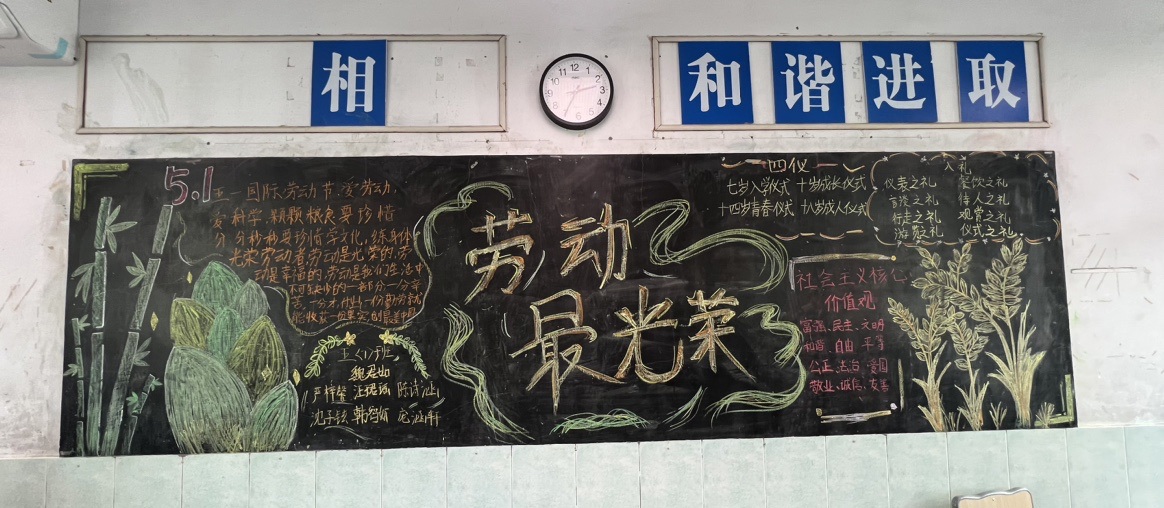 相
和谐进取
5.1
五一国际劳动节,爱劳动,
爱科学,颗颗粮食要珍惜
分分秒秒要珍惜学文化,练身体
光荣劳动者劳动是光荣的,劳
动是幸福的,劳动是我们生活中
不可缺少的一部分一分辛
苦一分才,付出一份勤劳就
能收获一份
五(1)班
严梓馨
沈子铉
劳动
最光荣
四仪
七岁入学仪式 十岁成长仪式
十四岁青春仪式 十八岁成人仪式
八礼
仪表之礼 餐饮之礼
言谈之礼 待人之礼
行走之礼 观赏之礼
游览之礼 仪式之礼
社会主义核心
价值观
富强、民主、文明
和谐、自由、平等
公正、法治、爱国
敬业、诚信、友善